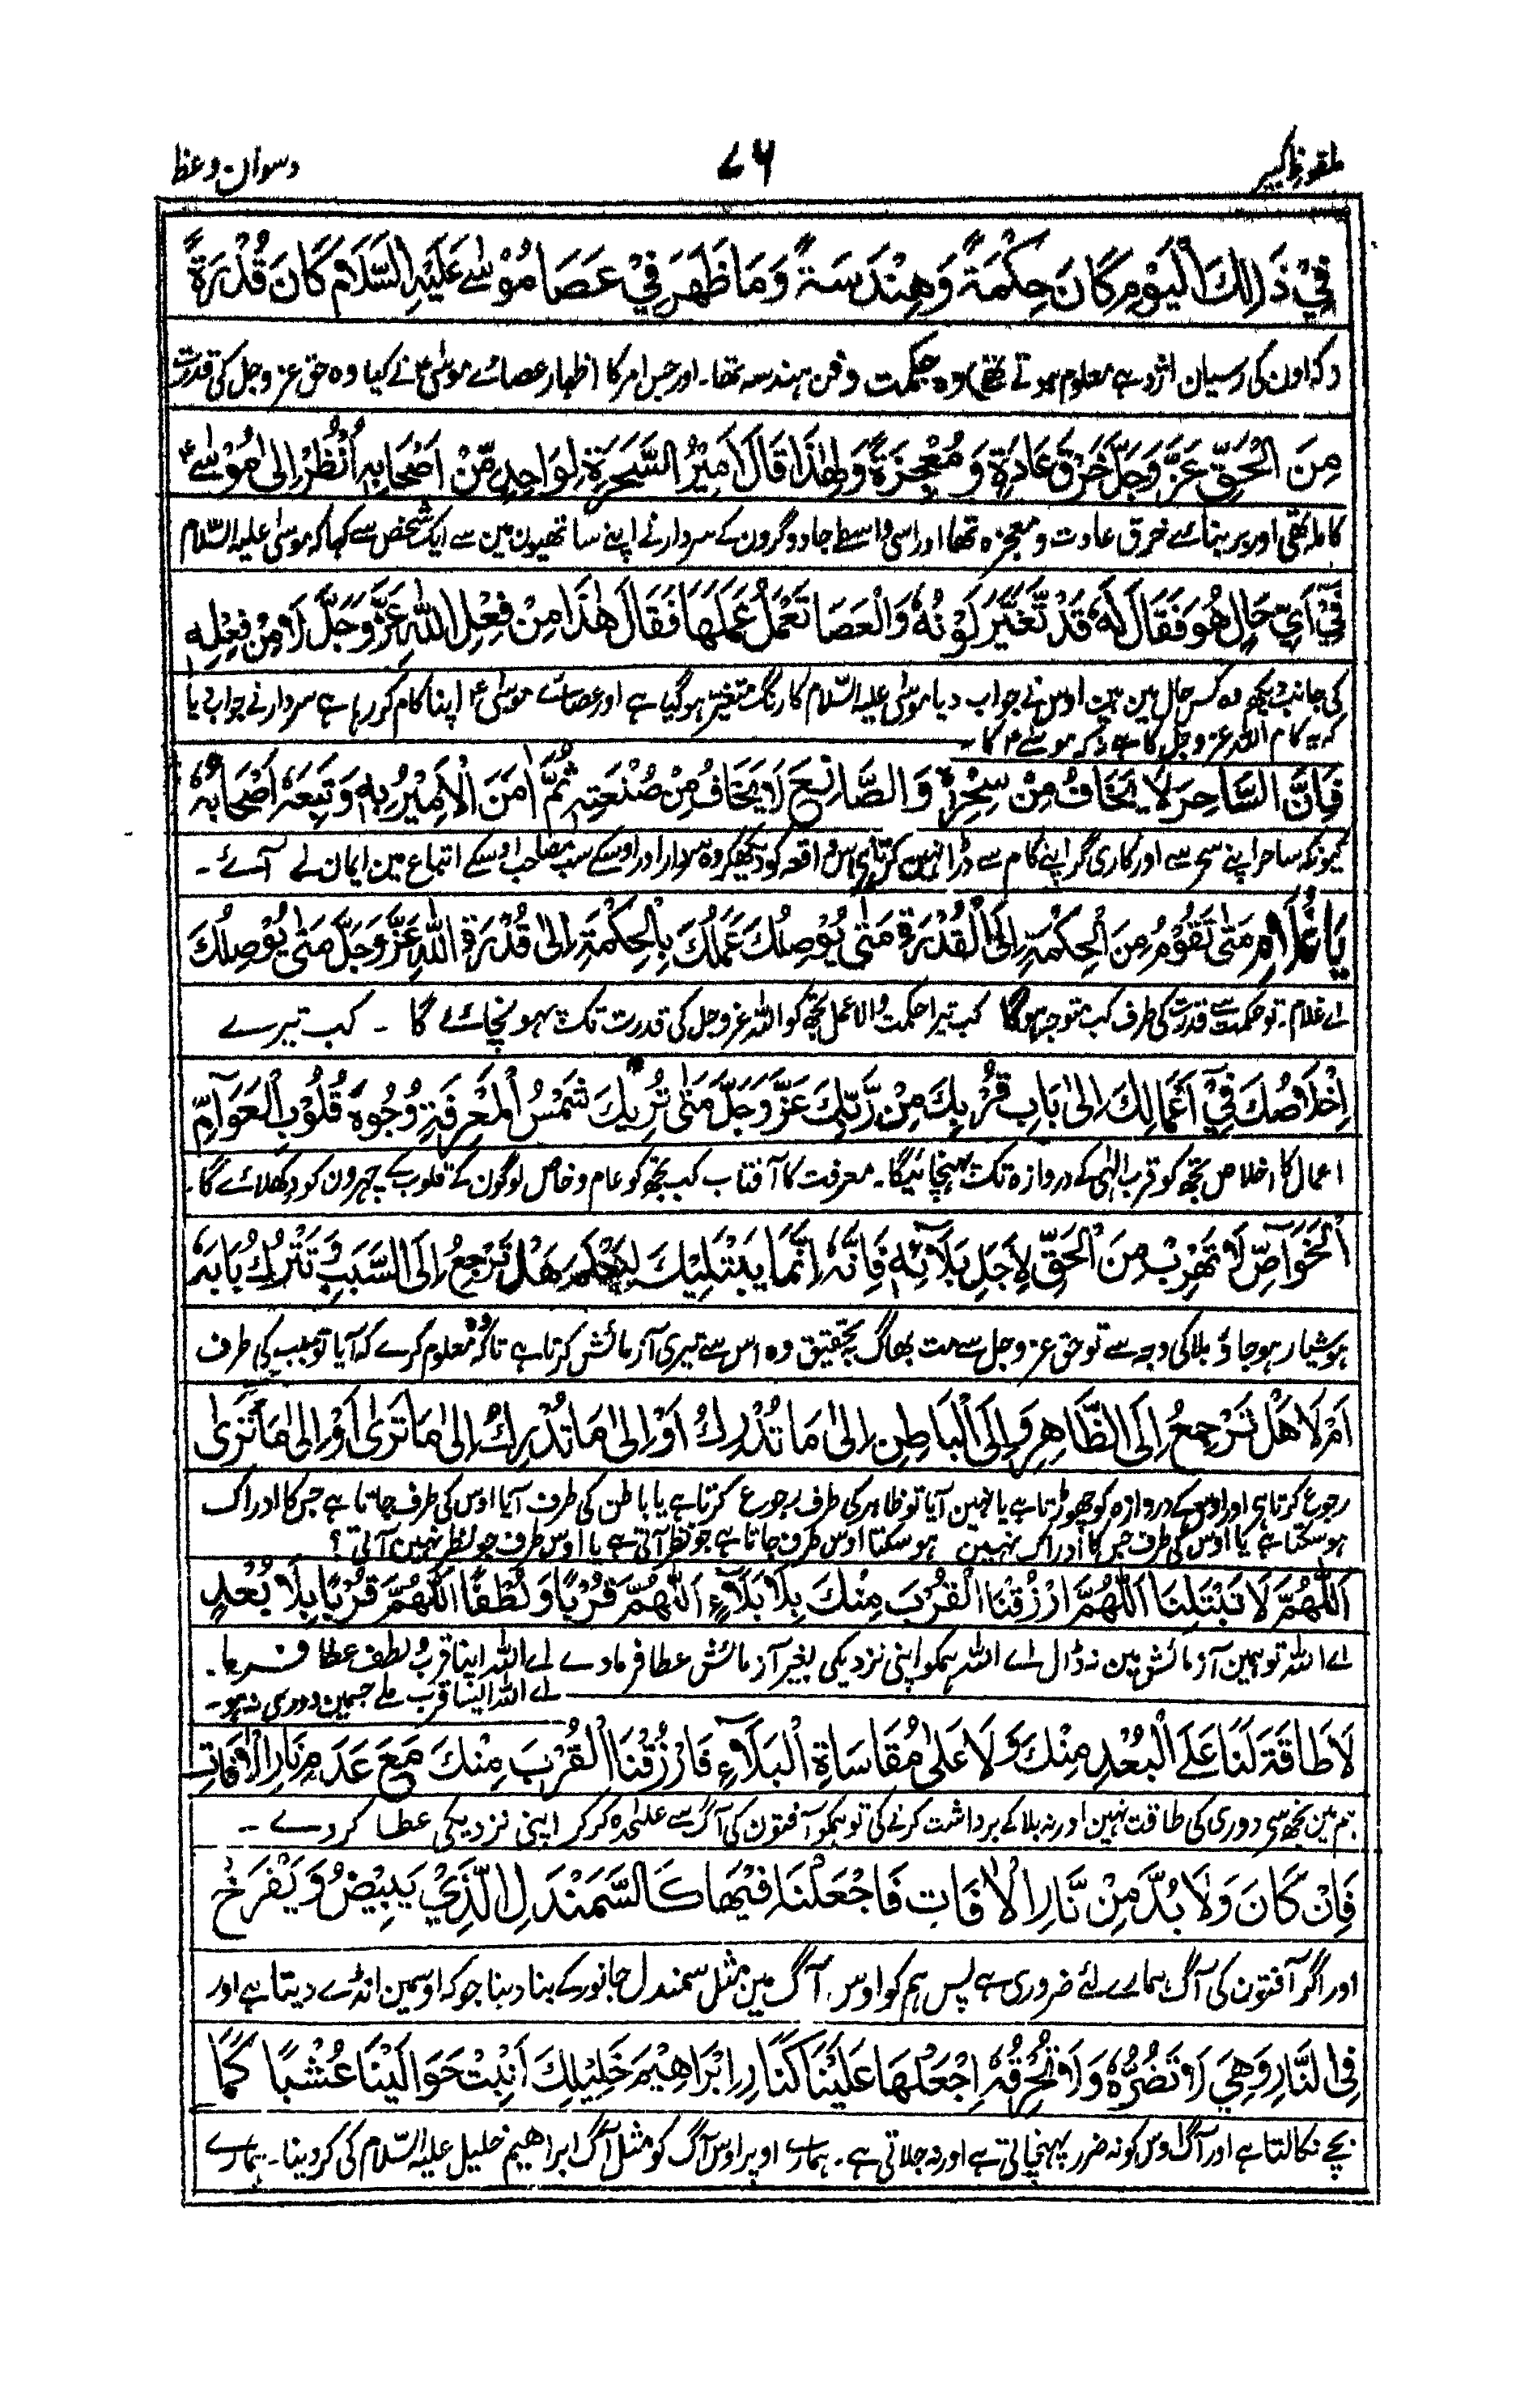 ملفوظ کبیر
۷۶
دسوان وعظ
فِيْ ذٰلِكَ الْيَوْمِ كَانَ حِكْمَةً وَهِنْدَسَةً وَمَا ظَهَرَ فِيْ عَصَا مُوْسٰے عَلَيْهِ السَّلَامُ كَانَ قُدْرَةً
دکہ اون کی رسیان اژدہے معلوم ہوتے تھے) وہ حکمت وفن ہندسہ تھا۔ اور جس امر کا اظہار عصائے موسیٰ ؑ نے کیا وہ حق عزوجل کی قدرت
مِنَ الْحَقِّ عَزَّ وَجَلَّ خَرْقَ عَادَةٍ وَ مُعْجِزَةً وَلِهٰذَا قَالَ اَمِيْرُ السَّحَرَةِ لِوَاحِدٍ مِّنْ اَصْحَابِهٖ اُنْظُرْ اِلٰى مُوْسٰے ؑ
کاملہ تھی اور بر بنائے خرق عادت و معجزہ تھا اور اسی واسطے جادوگرون کے سردار نے اپنے ساتھیون مین سے ایک شخص سے کہا کہ موسیٰ علیہ السّلام
فِيْٓ اَيِّ حَالٍ هُوَ فَقَالَ لَهٗ قَدْ تَّغَيَّرَ لَوْنُهٗ وَالْعَصَا تَعْمَلُ عَمَلَهَا فَقَالَ هٰذَا مِنْ فِعْلِ اللّٰهِ عَزَّ وَجَلَّ لَا مِنْ فِعْلِهٖ
کی جانب دیکھ وہ کس حال مین ہین اوس نے جواب دیا موسیٰ علیہ السّلام کا رنگ متغیر ہوگیا ہے اور عصائے موسیٰ ؑ اپنا کام کر رہا ہے سردار نے جواب دیا
کہ یہ کام اللہ عزوجل کا ہے نہ کہ موسٰے ؑ کا۔
فَاِنَّ السَّاحِرَ لَا يَخَافُ مِنْ سِحْرِهٖ وَالصَّانِعَ لَا يَخَافُ مِنْ صُنْعَتِهٖ ثُمَّ اٰمَنَ الْاَمِيْرُ بِهٖ وَتَبِعَهٗ اَصْحَابُهٗ
کیونکہ ساحر اپنے سحر سے اور کاری گر اپنے کام سے ڈرا نہین کرتا ہی اس واقعہ کو دیکھکر وہ سردار اور اوسکے سب مصاحب اوسکے اتباع مین ایمان لے آئے۔
يَا غُلَامُ مَتٰى تَقُوْمُ مِنَ الْحِكْمَةِ اِلَى الْقُدْرَةِ مَتٰى يُوْصِلُكَ عَمَلُكَ بِالْحِكْمَةِ اِلٰى قُدْرَةِ اللّٰهِ عَزَّ وَجَلَّ مَتٰى يُوْصِلُكَ
اے غلام۔ تو حکمت سے قدرت کی طرف کب متوجہ ہوگا کب تیرا حکمت والا عمل تجھ کو اللہ عزوجل کی قدرت تک پہونچائے گا ۔ کب تیرے
اِخْلَاصُكَ فِيْٓ اَعْمَالِكَ اِلٰى بَابِ قُرْبِكَ مِنْ رَّبِّكَ عَزَّ وَجَلَّ مَتٰى تُرِيْكَ شَمْسُ الْمَعْرِفَةِ وُجُوْهَ قُلُوْبِ الْعَوَآمِّ
اعمال کا اخلاص تجھ کو قرب الٰہی کے دروازہ تک پہنچائیگا۔ معرفت کا آفتاب کب تجھ کو عام و خاص لوگون کے قلوب کے چہرون کو دکھلائے گا۔
اَلْخَوَاصِّ لَا تَهْرُبْ مِنَ الْحَقِّ لِاَجَلِ بَلَآئِهٖ فَاِنَّهٗ اِنَّمَا يَبْتَلِيْكَ لِيَعْلَمَ هَلْ تَرْجِعُ اِلَى السَّبَبِ وَ تَتْرُكُ بَابَهٗ
ہوشیار ہو جاؤ بلا کی وجہ سے تو حق عزوجل سے مت بھاگ بتحقیق وہ اس سے تیری آزمائش کرتا ہے تاکہ وہ معلوم کرے کہ آیا تو سبب کی طرف
اَمْ لَا هَلْ تَرْجِعُ اِلَى الظَّاهِرِ وَ اِلَى الْبَاطِنِ اِلٰى مَا تُدْرِكُ اَوْ اِلٰى مَا تُدْرِكُ اِلٰى مَا تَرٰى اَوْ اِلٰى مَا تَرٰى
رجوع کرتا ہی اور اوس کے دروازہ کو چھوڑتا ہے یا نہین آیا تو ظاہر کی طرف رجوع کرتا ہے یا باطن کی طرف آیا اوس کی طرف جاتا ہے جس کا ادراک
ہو سکتا ہے یا اوس کی طرف جس کا ادراک نہین ہو سکتا اوس طرف جاتا ہے جو نظر آتی ہے یا اوس طرف جو نظر نہین آتی؟
اَللّٰهُمَّ لَا تَبْتَلِنَا اَللّٰهُمَّ ارْزُقْنَا الْقُرْبَ مِنْكَ بِلَا بَلَآءٍ اَللّٰهُمَّ قُرْبًا وَ لُطْفًا اَللّٰهُمَّ قُرْبًا بِلَا بُعْدٍ
اے اللہ تو ہمین آزمائش مین نہ ڈال اے اللہ ہمکو اپنی نزدیکی بغیر آزمائش عطا فرما دے اے اللہ اپنا قرب و لطف عطا فرما۔
اے اللہ ایسا قرب ملے جسمین دوری نہ ہو۔
لَا طَاقَةَ لَنَا عَلَى الْبُعْدِ مِنْكَ وَ لَا عَلٰى مُقَاسَاةِ الْبَلَآءِ فَارْزُقْنَا الْقُرْبَ مِنْكَ مَعَ عَدَمِ نَارِ الْاٰفَاتِ
ہم مین تجھ سے دوری کی طاقت نہین اور نہ بلا کے برداشت کرنے کی تو ہمکو آفتون کی آگ سے علٰحدہ کر کر اپنی نزدیکی عطا کر دے۔
فَاِنْ كَانَ وَلَا بُدَّ مِنْ نَّارِ الْاٰفَاتِ فَاجْعَلْنَا فِيْهَا كَالسَّمَنْدَلِ الَّذِيْ يَبِيْضُ وَ يَفْرَخُ
اور اگر آفتون کی آگ ہمارے لئے ضروری ہے پس ہم کو اوس آگ مین مثل سمندل جانور کے بنا دینا جو کہ اوسمین انڈے دیتا ہے اور
فِى النَّارِ وَهِيَ لَا تَضُرُّهٗ وَ لَا تُحْرِقُهٗ اِجْعَلْهَا عَلَيْنَا كَنَارِ اِبْرَاهِيْمَ خَلِيْلِكَ اَنْبِتْ حَوَالَيْنَا عُشْبًا كَمَا
بچے نکالتا ہے اور آگ اوس کو نہ ضرر پہنچاتی ہے اور نہ جلاتی ہے۔ ہمارے اوپر اوس آگ کو مثل آگ ابراھیم خلیل علیہ السّلام کی کر دینا۔ ہمارے